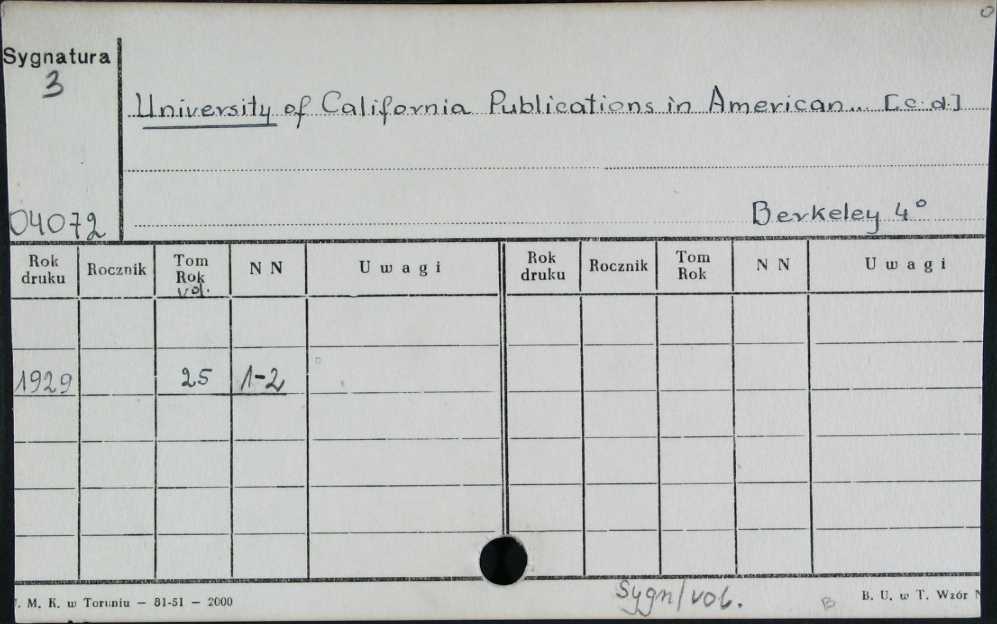 0
Sygnatura
3
University of California Publications in American... [c.d.]
04072
Berkeley 4°
Rok druku Rocznik Tom Rok vol. N N Uwagi Rok druku Rocznik Tom Rok N N Uwagi
1929 25 1-2
Sygn/vol.
. M. K. w Toruniu — 81-51 — 2000 B B. U. w T. Wzór N